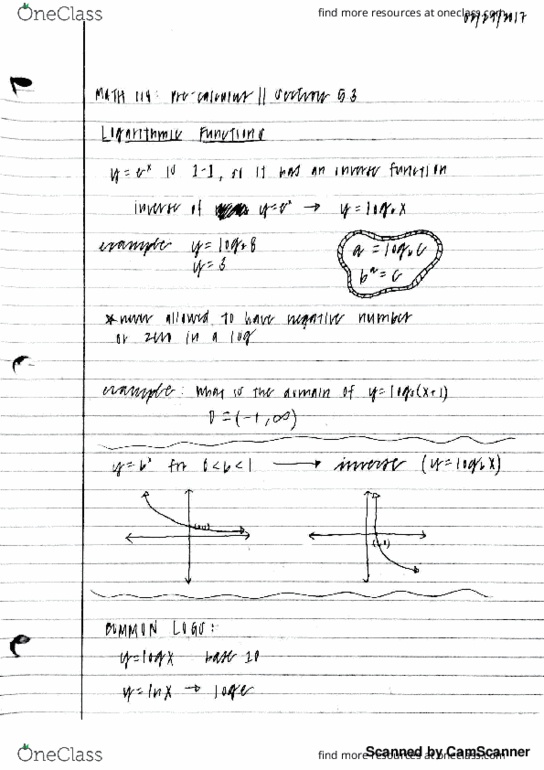 OneClass
find more resources at oneclass.com
/2017
MATH 114: Pre-calculus || Section 5.3
Logarithmic Functions
is 1-1, so it has an inverse function
inverse of → y = log x
example y = log 8
y = 3
a = log_b c
b^a = c
*never allowed to have negative number
or zero in a log
example: What is the domain of y = log (x+1)
D = (-1, ∞)
y = b^x for 0 < b < 1 → inverse (y = log_b x)
COMMON LOGS:
y = log x base 10
y = ln x → log e
OneClass
find more resources at oneclass.com
Scanned by CamScanner